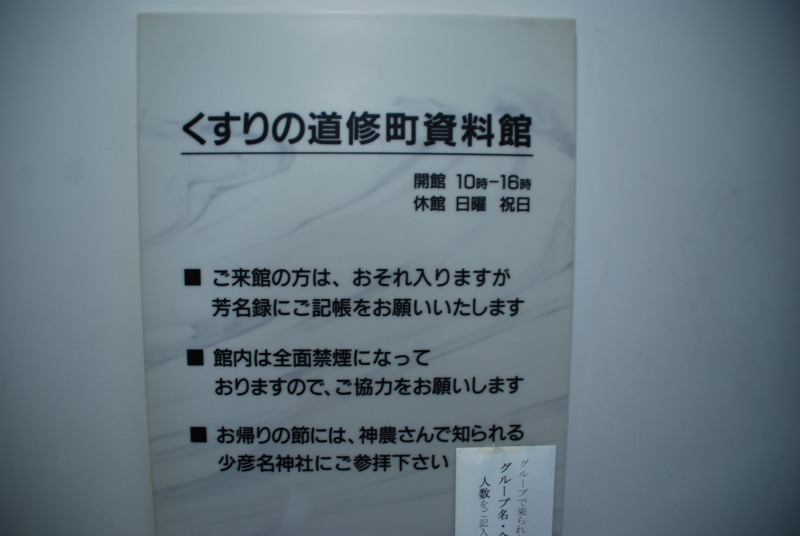 くすりの道修町資料館
開館 10時−16時
休館 日曜 祝日
■ ご来館の方は、おそれ入りますが
芳名録にご記帳をお願いいたします
■ 館内は全面禁煙になって
おりますので、ご協力をお願いします
■ お帰りの節には、神農さんで知られる
少彦名神社にご参拝下さい
グループで来られ
グループ名・
人数をご記入